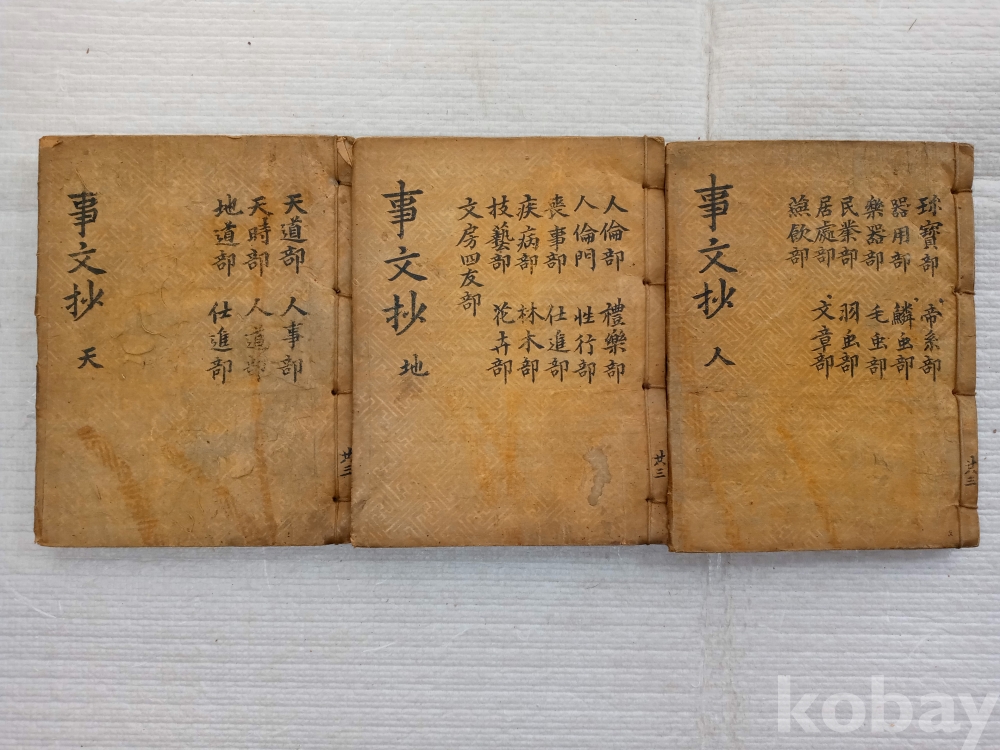 事文抄 天
天道部 人事部
天時部 人道部
地道部 仕進部
共三
事文抄 地
人倫部 禮樂部
人倫門 性行部
喪事部 仕進部
疾病部 林木部
技藝部 花卉部
文房四友部
共三
事文抄 人
珎寶部 帝系部
器用部 鱗虫部
樂器部 毛虫部
民業部 羽虫部
居處部 文章部
漁飲部
共三
kobay